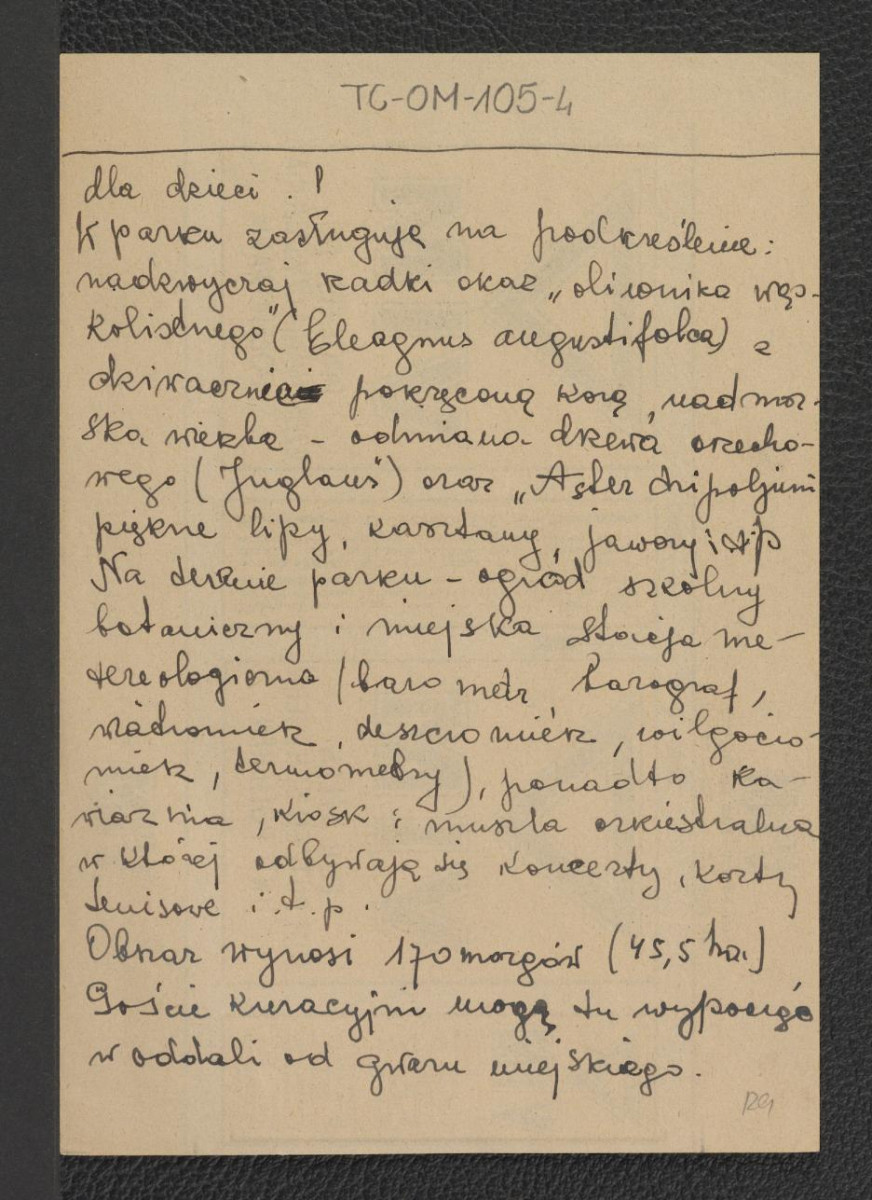 TG-OM-105-4
dla dzieci . !
K parku zasługuję na podkreślenie:
nadzwyczaj rzadki okaz „oliwnika wąs-
kolistnego" (Eleagnus augustifolia) z
dziwacznie pokręconą korą, nadmor-
ska wierzba - odmiana drzewa orzecho-
wego (Juglans) oraz „Aster tripolium
piękne lipy, kasztany, jawory i t p
Na terenie parku - ogród szkolny
botaniczny i miejska stacja me-
tereologiczna (barometr, barograf,
wiatromierz, deszczomierz, wilgocio-
mierz, termometry), ponadto ka-
wiarnia, kiosk i muszla orkiestralna
w której odbywają się koncerty, korty
tenisowe i.t.p.
Obszar wynosi 170 morgów (45,5 ha.)
Goście kuracyjni mogą tu wypocząć
w oddali od gwaru miejskiego.